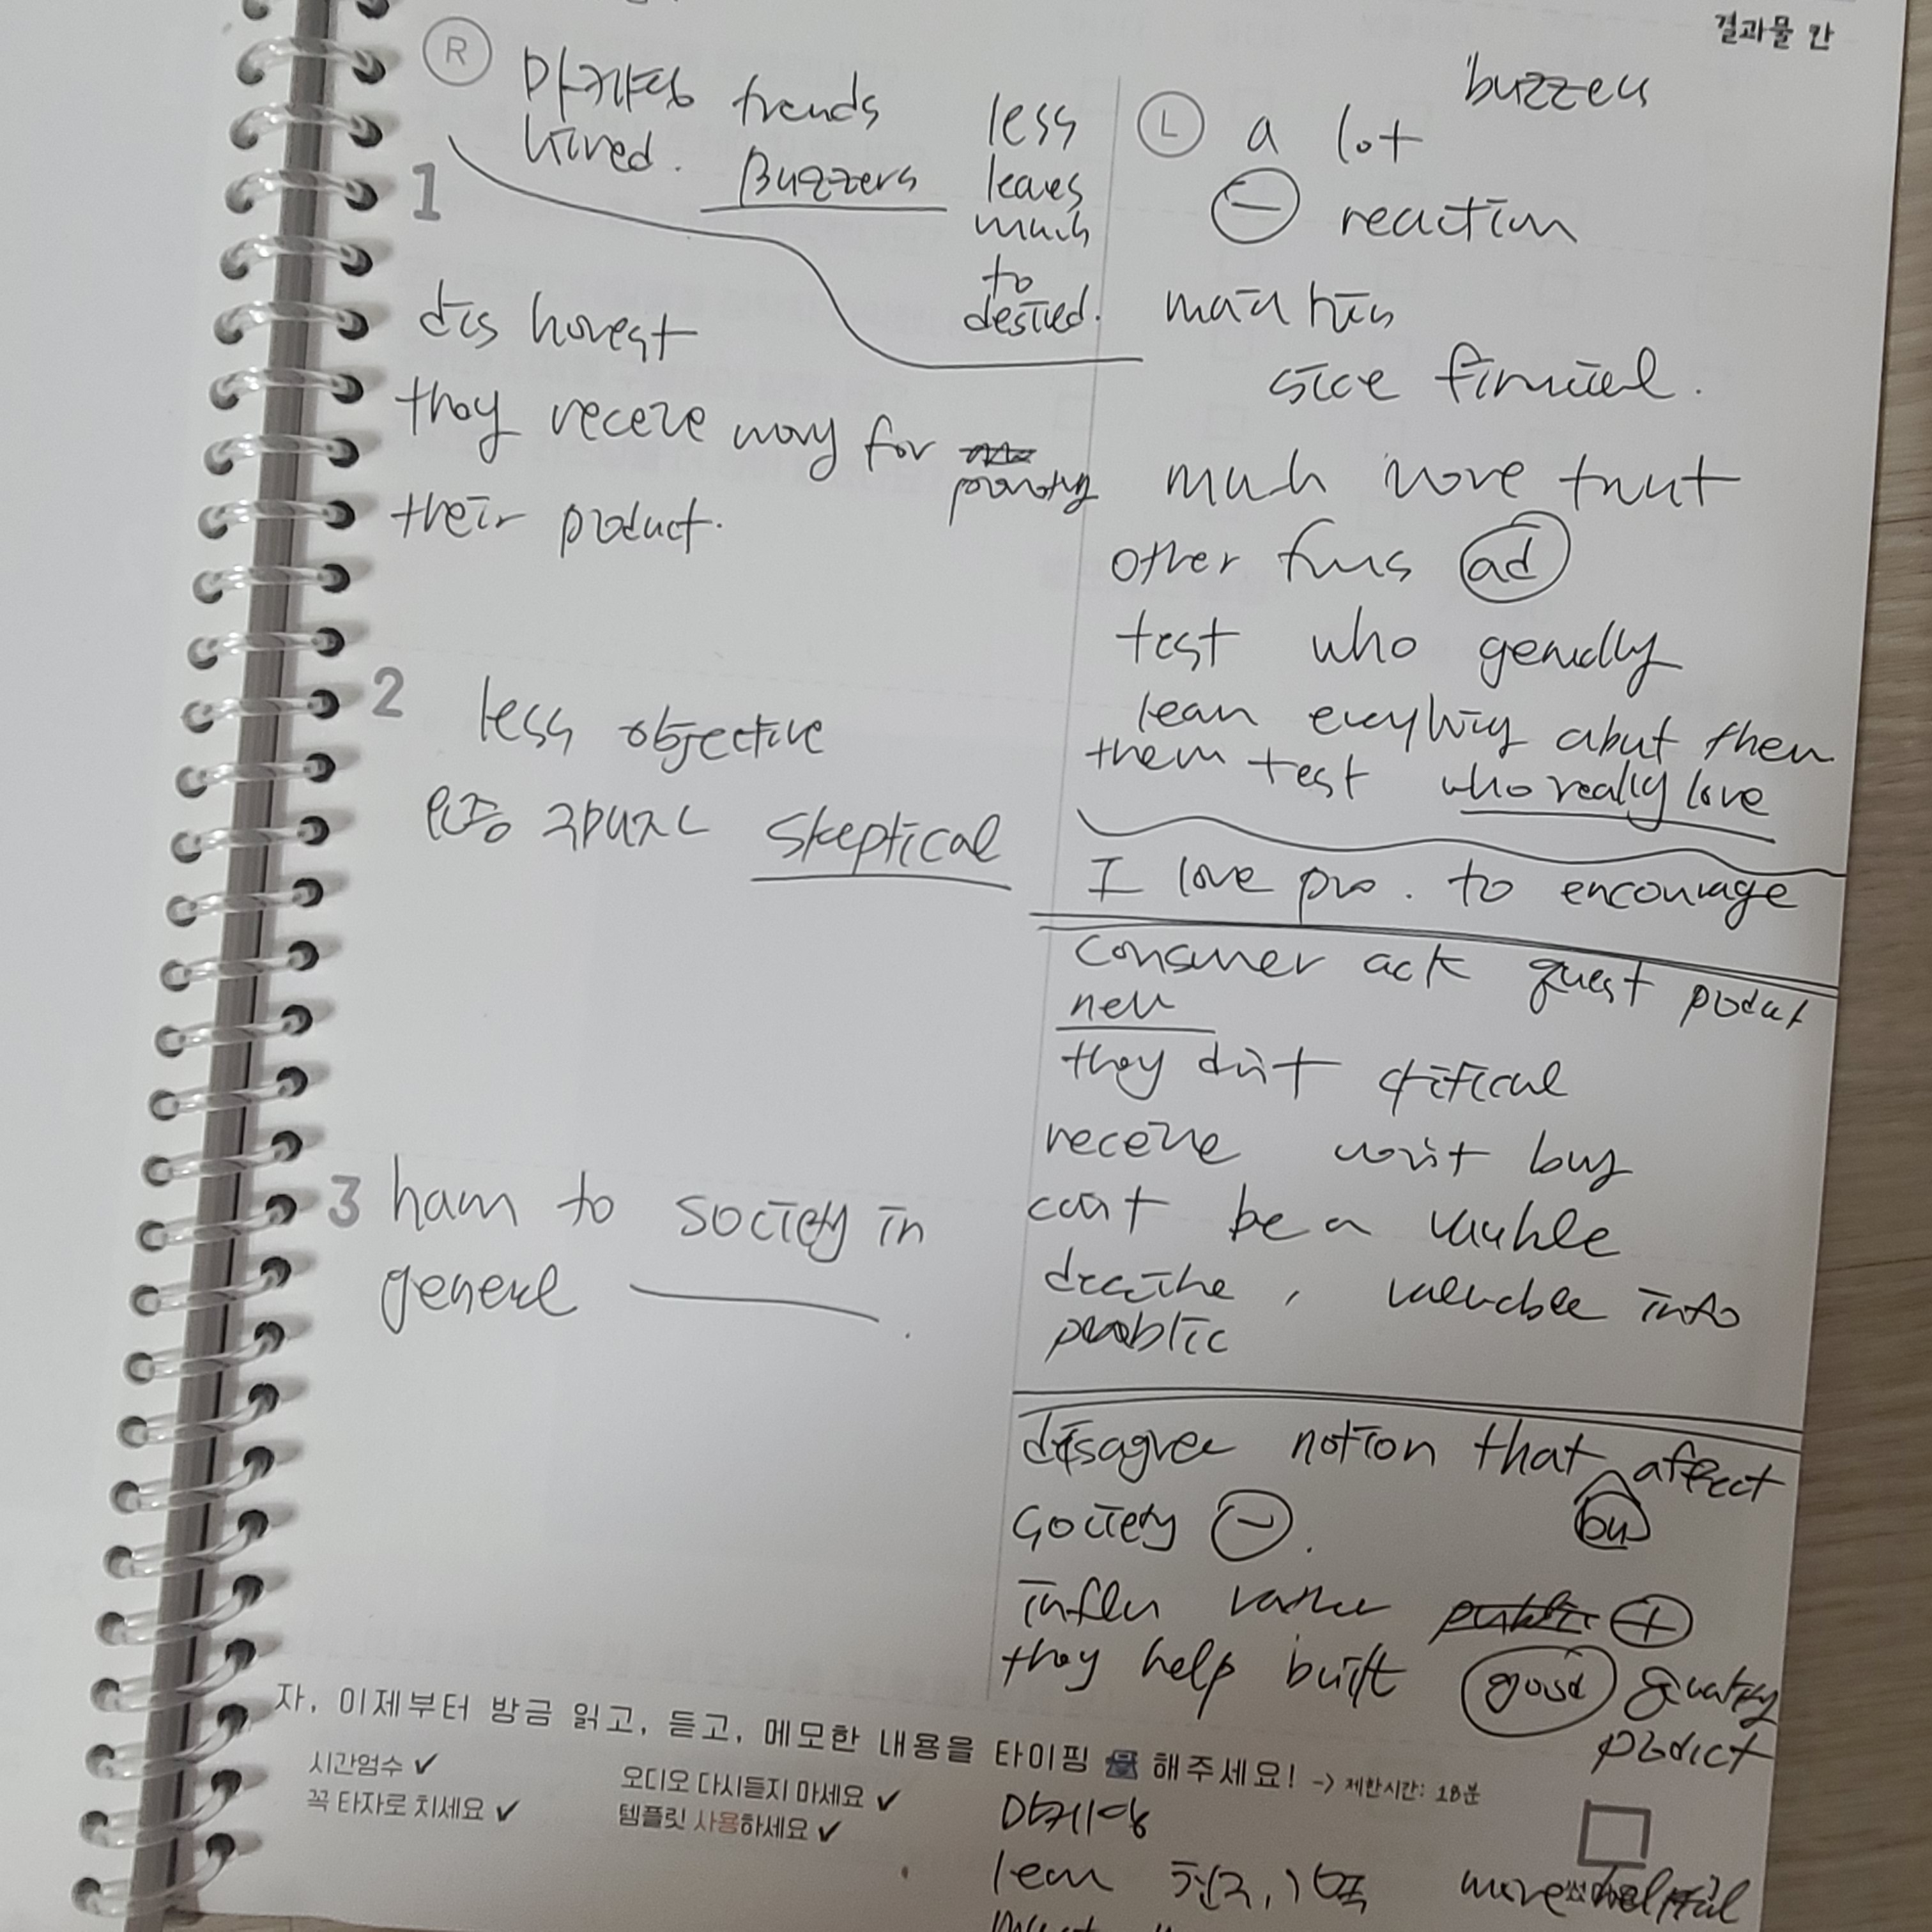 결과물 칸
R
마케팅 trends
hired. Buzzers
less
leaves
much
to
desired.
1
dis honest
they receive money for
their product.
2
less objective
skeptical
3
harm to society in
general
buzzers
L
a lot
⊖ reaction
much more trust
other firms ad
test who genually
learn everything about them
them test who really love
I love pro. to encourage
consumer ack quest product
new
they don't critical
receive won't buy
can't be a
valuable info
public
disagree notion that affect
bu
society ⊖.
⊕
they help built good quality
product
자, 이제부터 방금 읽고, 듣고, 메모한 내용을 타이핑 해주세요! -> 제한시간: 18분
시간엄수 ✓
꼭 타자로 치세요 ✓
오디오 다시듣지 마세요 ✓
템플릿 사용하세요 ✓
learn 친구, 가족 more helpful